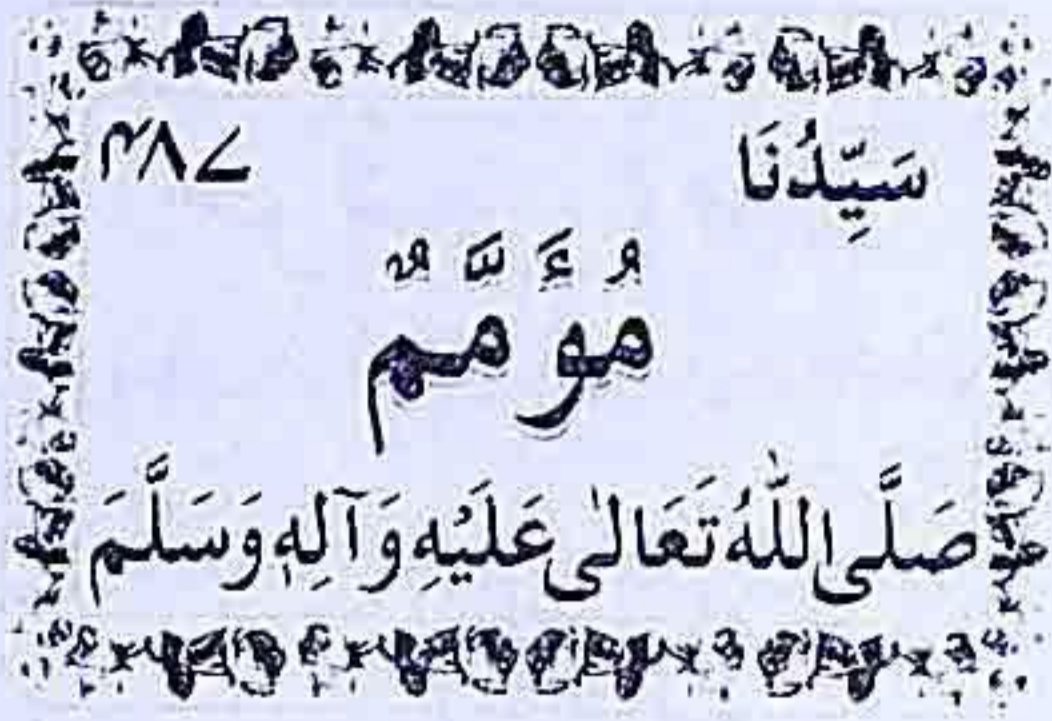 سَيِّدُنَا ۴۸۷
مُؤَمَّمٌ
صَلَّى اللّٰهُ تَعَالٰى عَلَيْهِ وَآلِهٖ وَسَلَّمَ